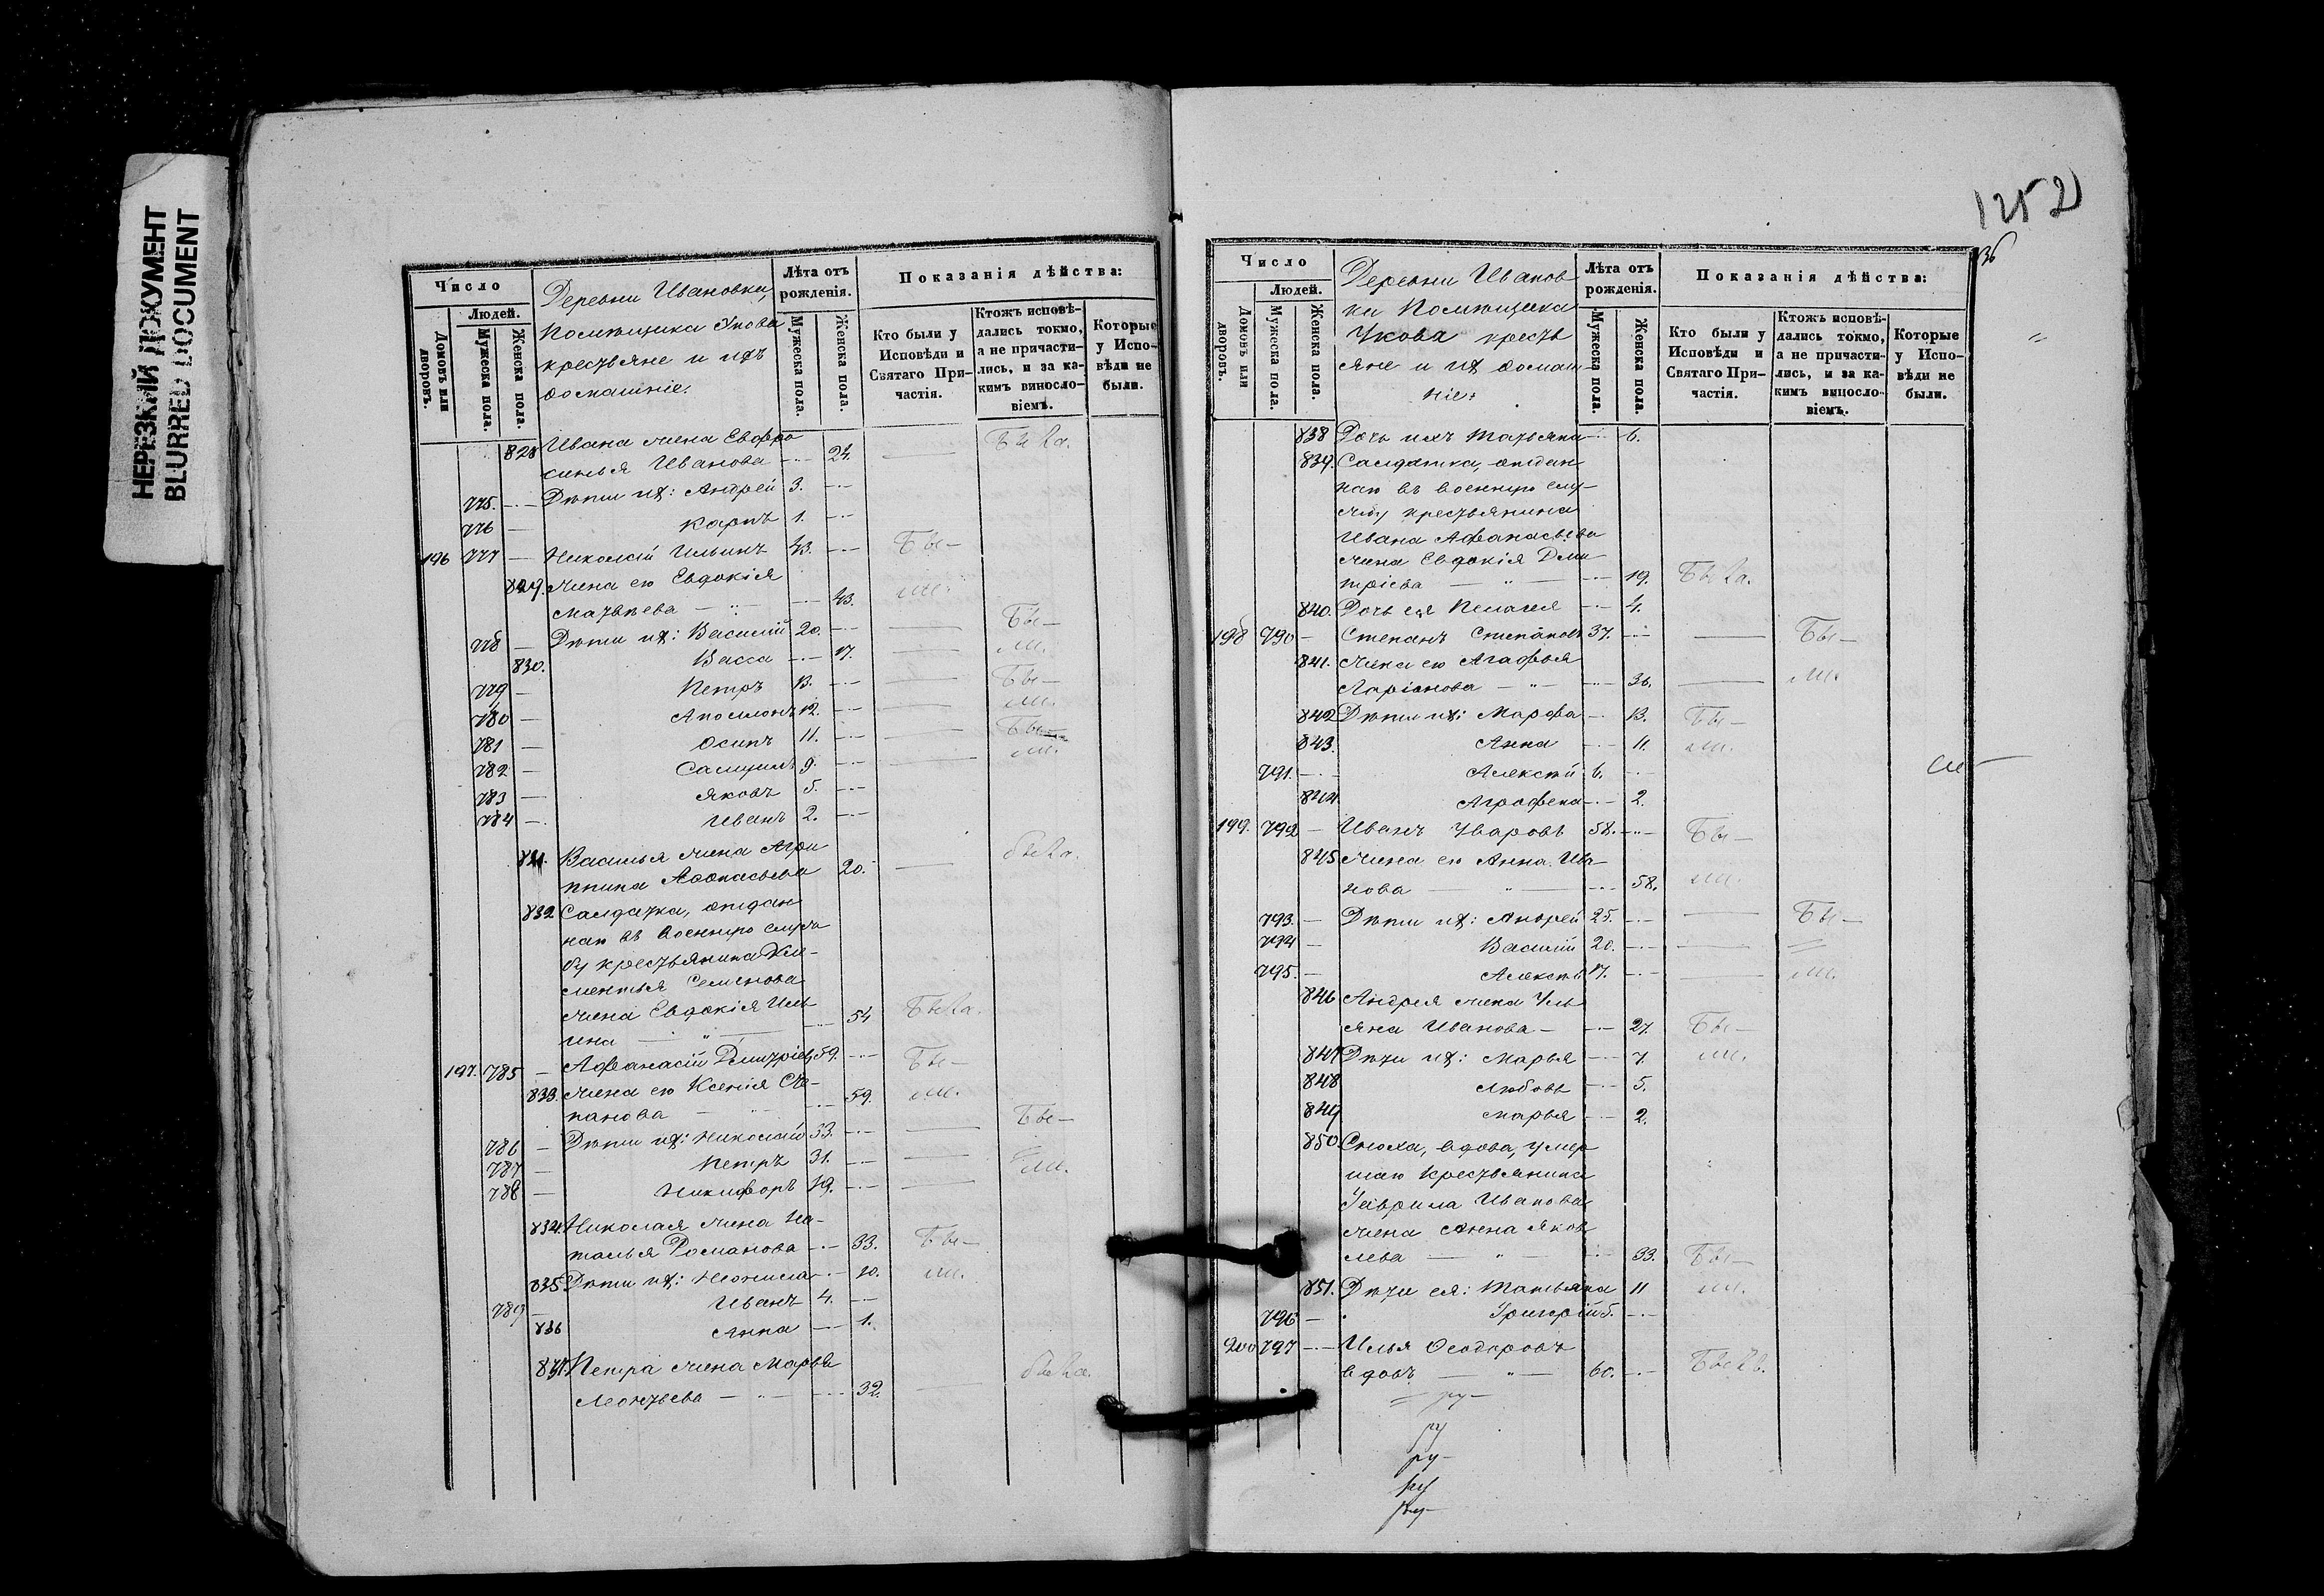 НЕРЕЗКИЙ ДОКУМЕНТ
BLURRED DOCUMENT
Число
Людей.
Домовъ или дворовъ.
Мужеска пола.
Женска пола.
Деревни Ивановки,
Помѣщика Укова
крестьяне и ихъ
домашніе.
Лѣта отъ рожденія.
Мужеска пола.
Женска пола.
Показанія дѣйства:
Кто были у Исповѣди и Святаго Причастія.
Ктожъ исповѣдались токмо, а не причастились, и за какимъ винословіемъ.
Которые у Исповѣди не были.
828 Ивана жена Евфро
синья Иванова 24. Была.
775. Дѣти их: Андрей 3.
776 Карпъ 1.
196 777 Николай Ильинъ 43. Бы
829. Жена ею Евдокія
Матвѣева 43. ли.
778 Дѣти их: Василій 20. Бы
830. Васса 17. ли.
779 Петръ 13. Бы
780 Аполлонъ 12. ли.
781 Осипъ 11. Бы
782 Самуилъ 9. ли.
783 Яковъ 5.
784 Иванъ 2.
831. Василья жена Агри
пина Афонасьева 20. была.
832 Салдатка, отдан
наю въ военную служ
бу крестьянина
Семенова
жена Евдокія Иль
ина 54 Была.
197. 785 Афанасій Дмитріевъ 59. Бы
833. Жена ею Ксенія Сте-
панова 59. ли.
786 Дѣти их: Николай 33. Бы
787 Петръ 31.
788 Никифоръ 19. ли.
834 Николая жена На-
талья Романова 33. Бы
835 Дѣти их: 10. ли.
789 Иванъ 4.
836 Анна 1.
837. Петра жена Марѳа
Леонтьева 32. была.
1252
Число
Людей.
Домовъ или дворовъ.
Мужеска пола.
Женска пола.
Деревни Иванов
ки Помѣщика
Укова кресть
яне и их домаш
ніе.
Лѣта отъ рожденія.
Мужеска пола.
Женска пола.
Показанія дѣйства:
Кто были у Исповѣди и Святаго Причастія.
Ктожъ исповѣдались токмо, а не причастились, и за какимъ винословіемъ.
Которые у Исповѣди не были.
838 Дочь ихъ Татьяна 6.
839. Салдатка, отдан
наю въ военную слу-
жбу крестьянина
Ивана Афанасьева
жена Евдокія Дми
тріева 19. Была.
840. Дочь ея Пелагея 4.
198 790 Степанъ Степановъ 37. Бы
841. Жена ею Агафья
Ларіонова 36. ли.
842 Дѣти их: Марфа 13. Бы
843. Анна 11. ли.
791. Алексѣй 6.
844 Агрофена 2.
199. 792 Иванъ Уваровъ 58. Бы
845 Жена ею Анна Ива-
нова 58. ли.
793. Дѣти их: Андрей 25. Бы
794 Василій 20.
795. Алексѣй 17. ли.
846 Андрея жена Уль
яна Иванова 27. Бы
847 Дѣти их: Марья 7. ли.
848 Любовь 5.
849 Марья 2.
850. Сноха, вдова, умер
шаю крестьянина
Гаврила Иванова
жена Анна Яков
лева 33. Бы
851. Дѣти ея: Татьяна 11 ли.
796 Григорій 5.
200 797 Илья Ѳеодоровъ
вдовъ 60. Былъ.